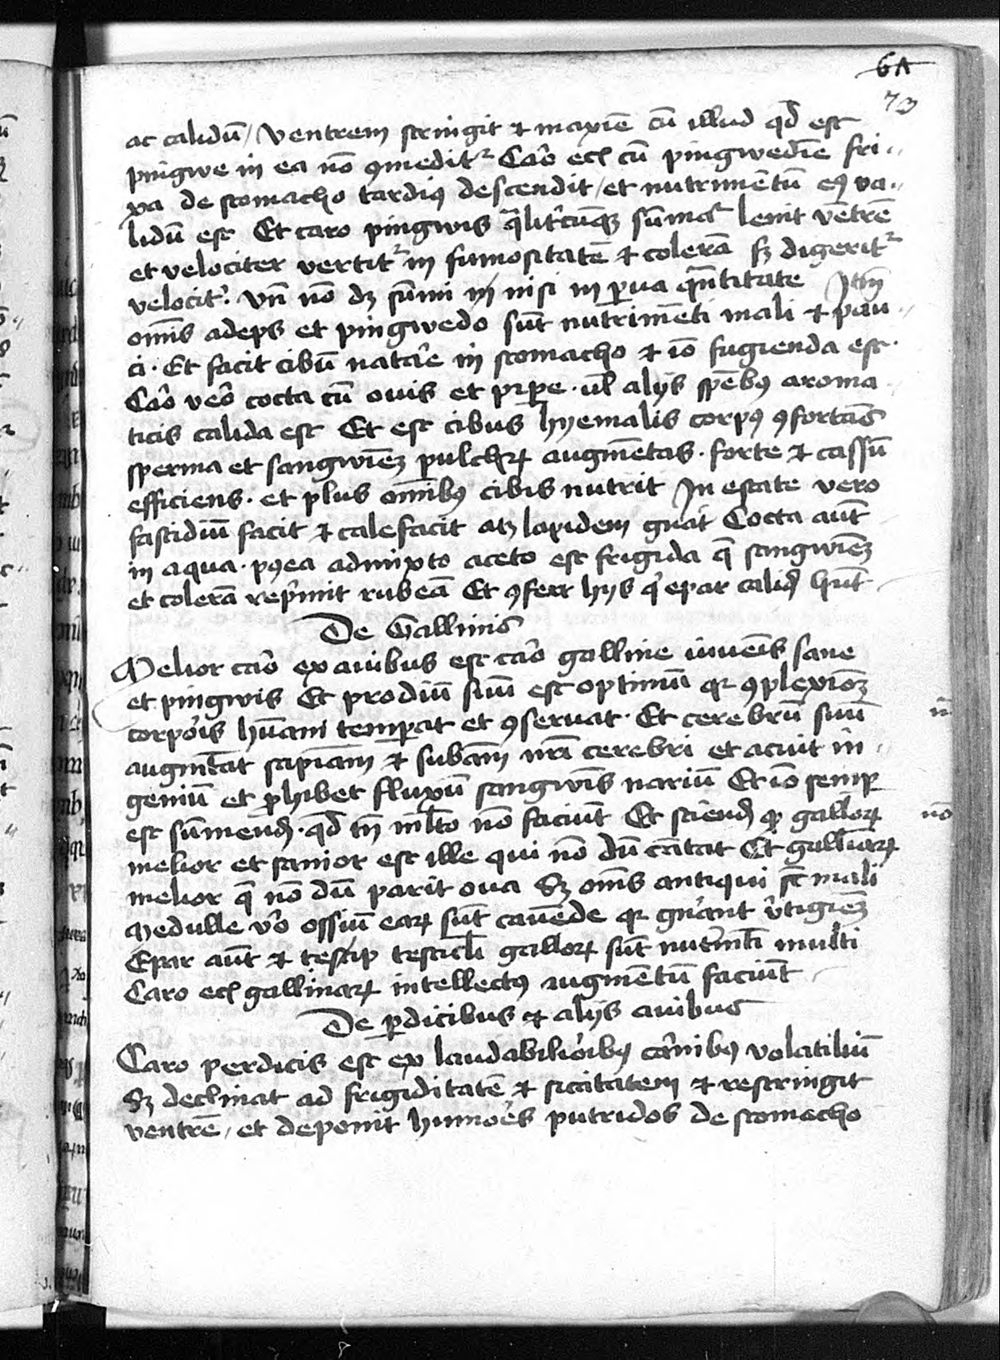 61
73
ac calidū / Ventrem stringit et maxīe cū illud qd̄ est
pingwe in ea nō ꝯmeditr Caro ec̄ cū pingwedīe fri
xa de stomacho tardiꝰ descendit / et nutrimētū eiꝰ va
lidū est Et caro pingwis q̄litcūqꝫ sūmatr lenit vētrē
et velociter vertitr in fumositatē et colerā sꝫ digeritr
velocitr. Vn̄ nō dꝫ sūmi in nisi in ꝑua q̄ntitate Itm̄
omīs adeps et pingwedo sūt nutrimēti mali et pau
ci · Et facit cibū natare in stomacho et iō fugienda est ·
Caro vero cocta cū ouis et pipere · ul̄ alijs sp̄ebꝰ aroma
ticis calida est Et est cibus hyemalis corpꝰ ꝯfortās
sperma et sangwiēꝫ pulchꝝ augmētas · forte et cassū
efficiens · et plus omībꝰ cibis nutrit In estate vero
fastidiū facit et calefacit atꝫ lapidem gn̄at Cocta aūt
in aqua · pꝰea admixto aceto est frigida q̄ sangwiēꝫ
et colerā rep̄mit rubeā Et ꝯfert hijs q̄ epar calid̄ hn̄t
De Gallinis
Melior caro ex auibus est caro galline iuuenis sane
et pingwis Et prodiū suū est optimū qr ꝯplexioēꝫ
corporis hūani temperat et ꝯseruat · Et cerebrū suū
augmētat sapiam̄ et subam̄ nr̄i cerebri et acuit in
geniū et ꝓhibet fluxū sangwīs nariū Et iō semꝑ
est sūmend̄ · qd̄ tn̄ ml̄to nō faciūt Et sciend̄ qꝫ galloꝝ
melior et sanior est ille qui nō dū cātat Et gallinaꝝ
melior q̄ nō dū parit oua Sꝫ omīs antiqui st̄ mali
Medulle vō ossiū eaꝝ sūt cauēde qr gn̄ant v̄tigiēꝫ
Epar aūt et testicli galloꝝ sūt nutm̄ti multi
Caro ec̄ gallinaꝝ intellectꝰ augmētū faciūt
De ꝑdicibus et alijs auibus
Caro perdicis est ex laudabilioribꝰ carnibꝰ volatiliū
Sꝫ declinat ad frigiditatē et siccitatem et restringit
ventrē / et deponit humores putridos de stomacho